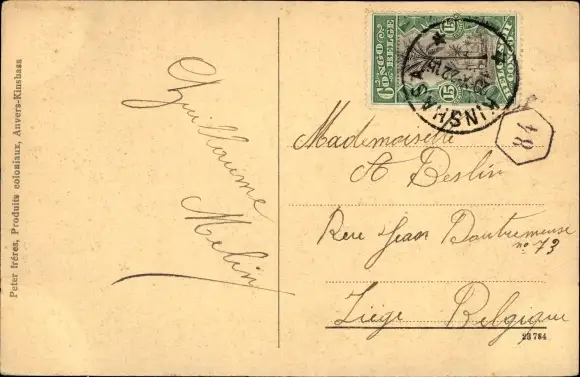 Peter frères, Produits coloniaux, Anvers-Kinshasa
Guillaume
Melin
CONGO BELGE
15
15
KINSHASA
84
Mademoiselle
A Beslin
Rue Jean Dautremeuse
no 73
Liège Belgique
23784